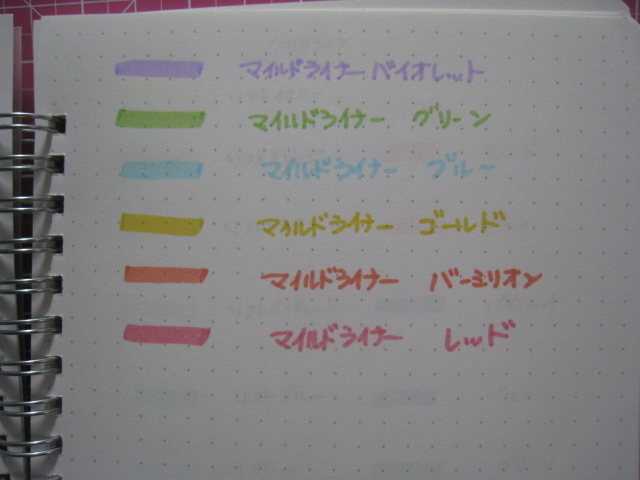 マイルドライナー バイオレット
マイルドライナー グリーン
マイルドライナー ブルー
マイルドライナー ゴールド
マイルドライナー バーミリオン
マイルドライナー レッド